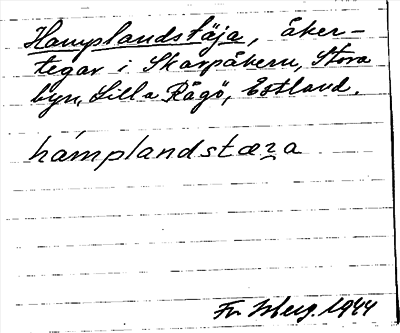 Hamplandstäja, åker-
tegar i Skarpåkern, Stora
byn, Lilla Rågö, Estland.
hámplandstæꝛa
Fr Isberg. 1944